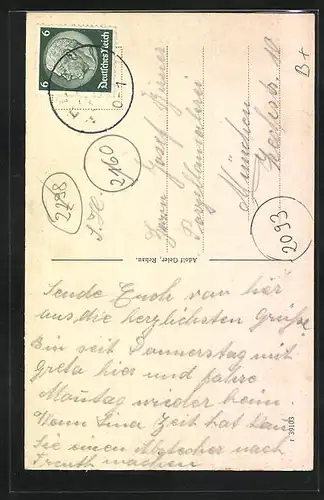 6
Deutsches Reich
6
B+
2298
S. H.
2160
2093
Herrn Josef
München
Adolf Geier, Rehau.
Sende Euch von hier
aus die herzlichsten Grüße
Bin seit Donnerstag mit
Greta hier und fahre
Montag wieder heim.
Wenn Lina Zeit hat kann
Sie einen Abstecher nach
machen
r 39103